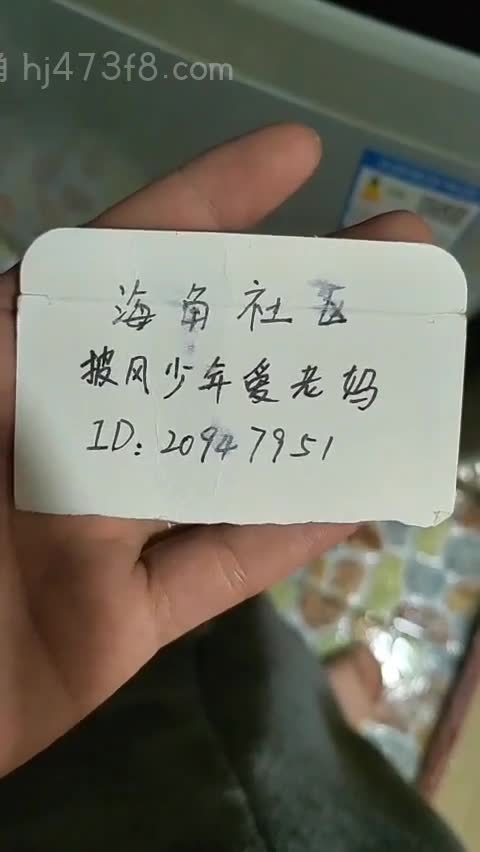 角 hj473f8.com
海角社区
披风少年爱老妈
ID: 20947951